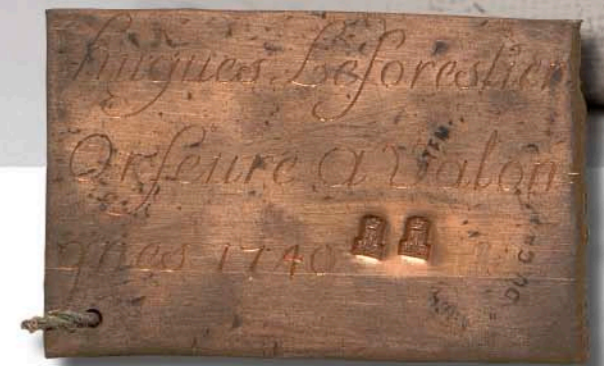 hugues Leforestier
Orfeure a Valon
gnes 1740